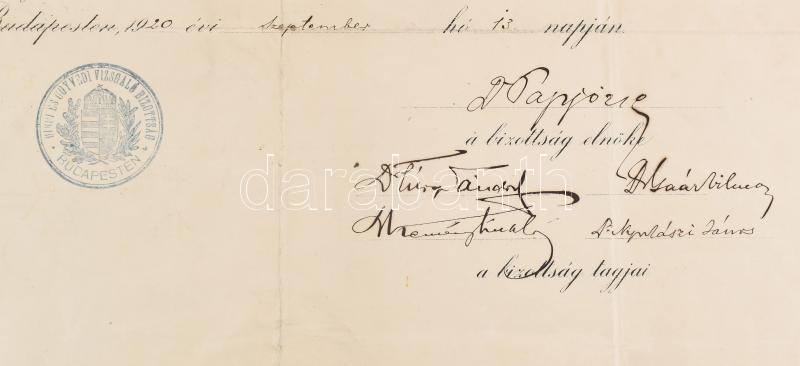 Budapesten, 1920 évi szeptember hó 13 napján.
BIRÓI ÉS ÜGYVÉDI VIZSGÁLÓ BIZOTTSÁG
BUDAPESTEN
Dr Papp József
a bizottság elnöke
Dr Túry Sándor
Dr Gaár Vilmos
Dr Nyulászi János
a bizottság tagjai
darabanth